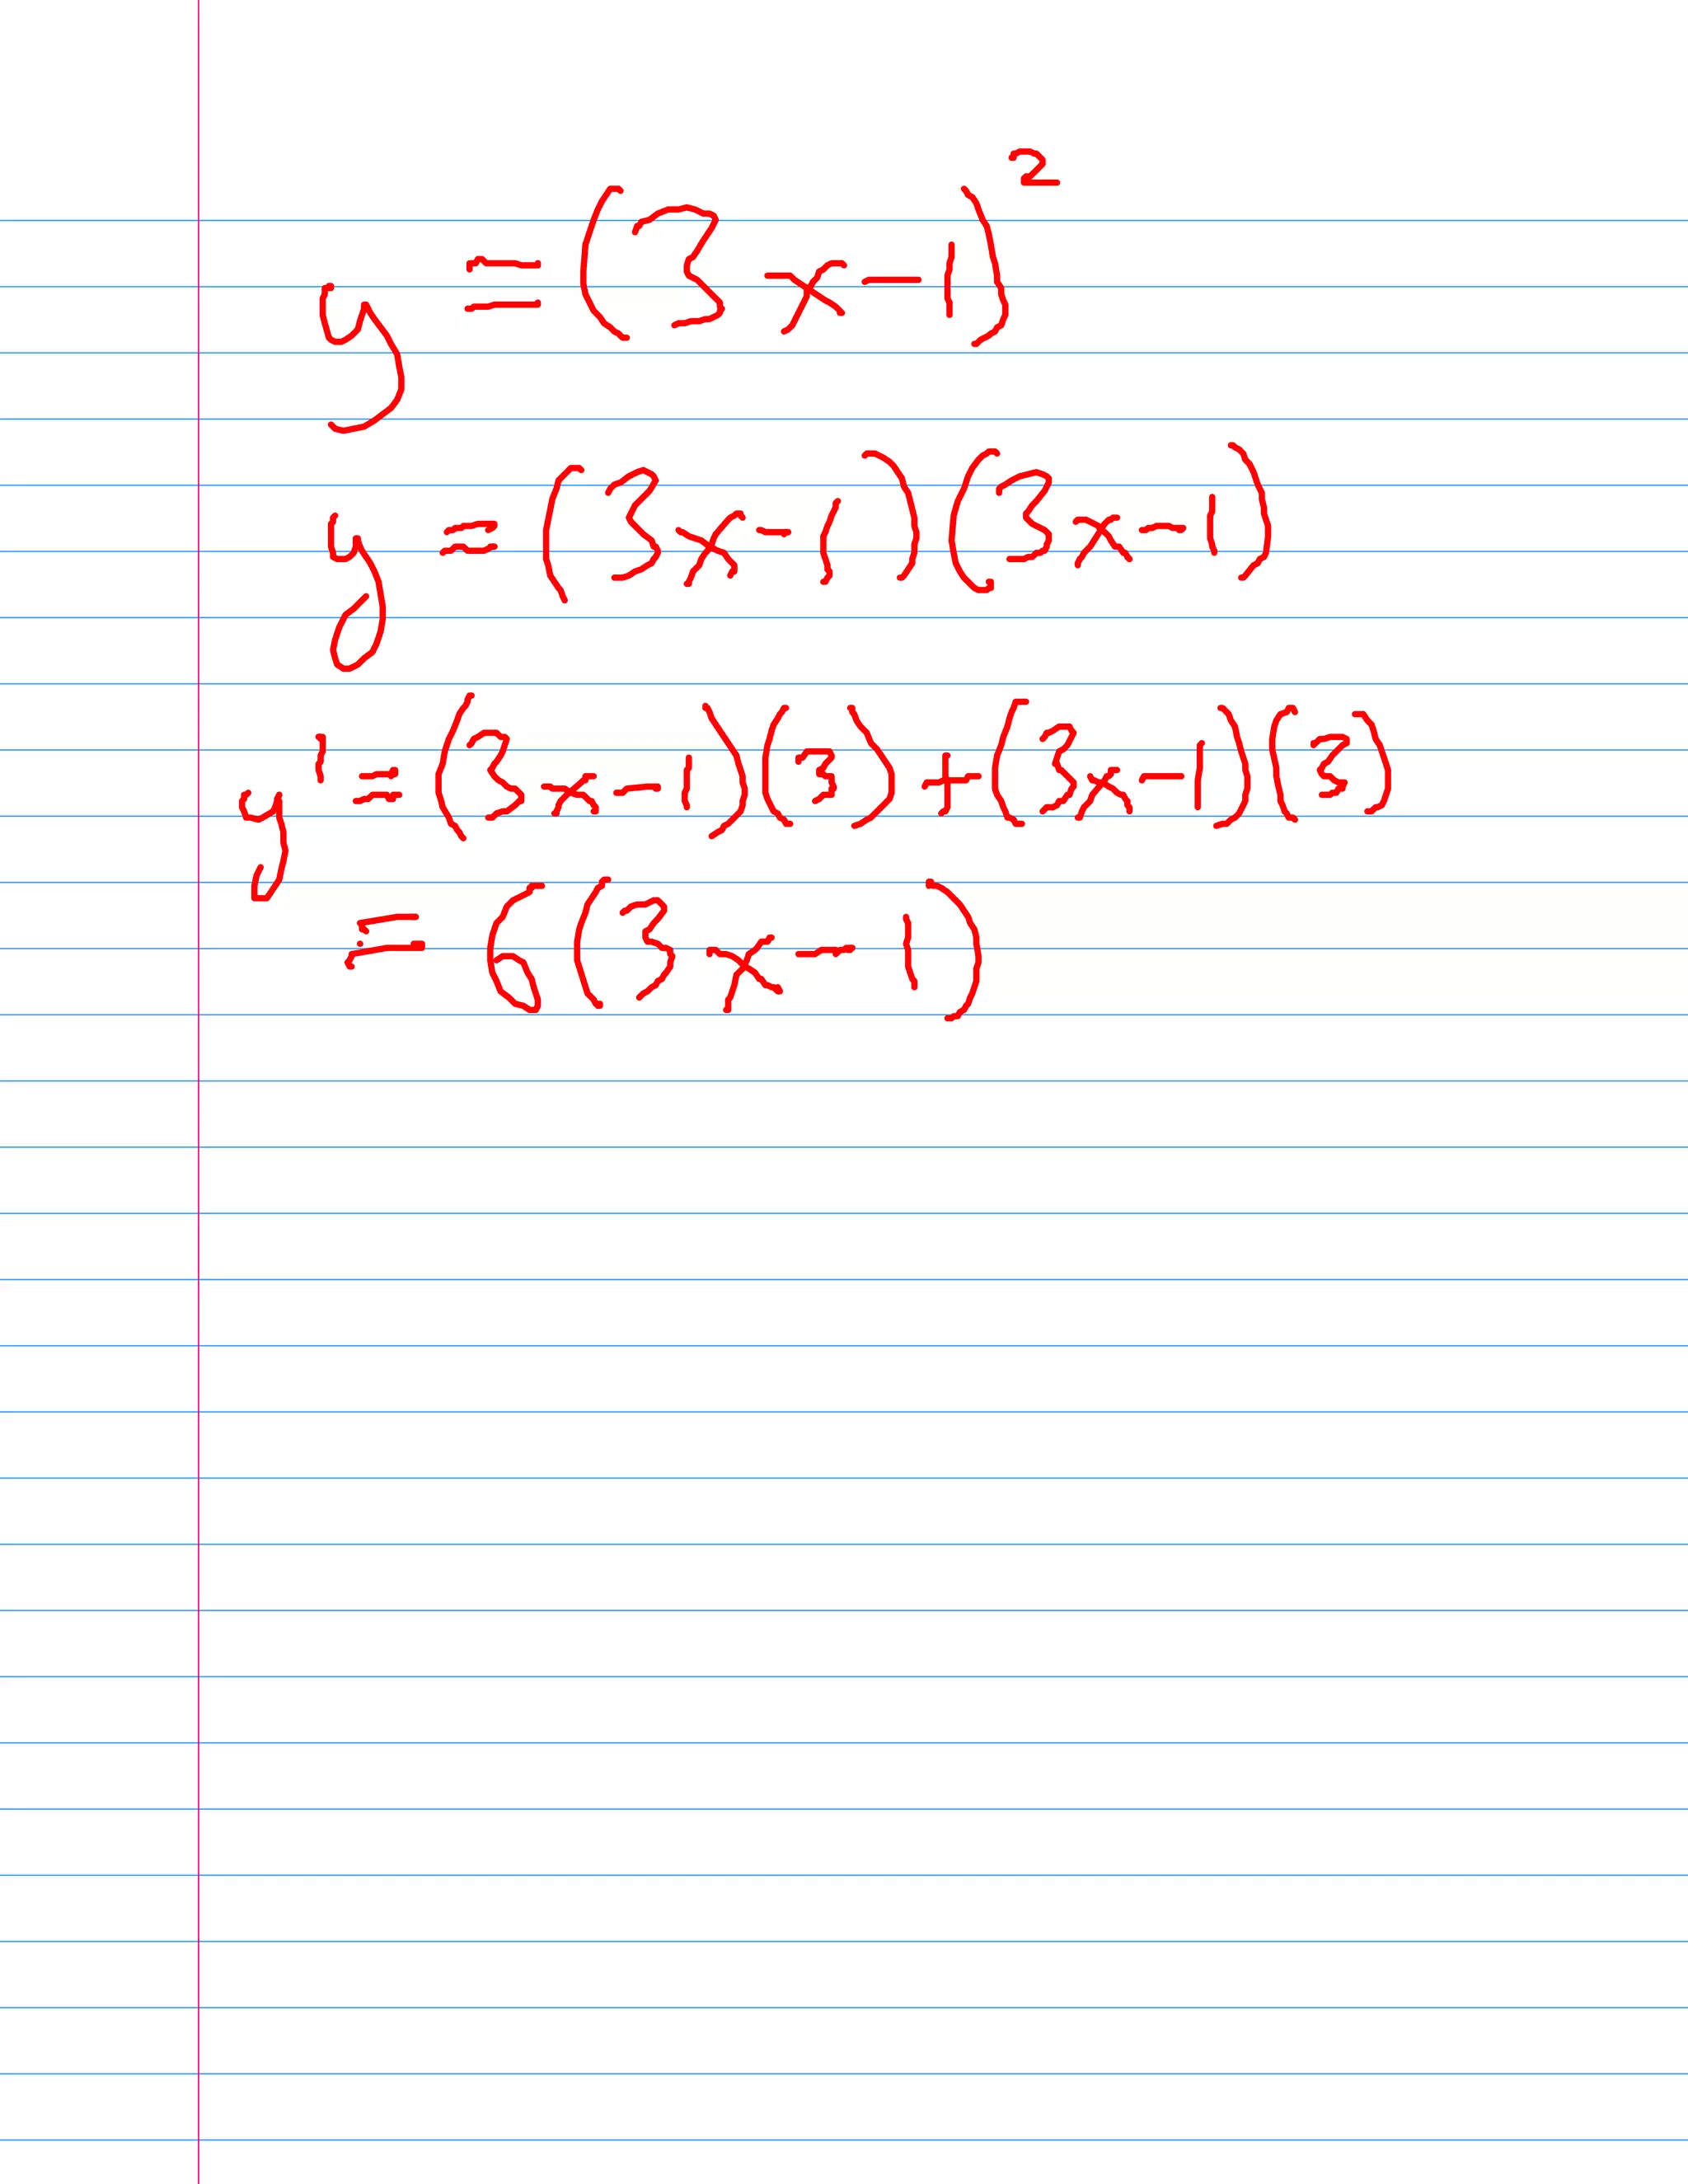 y = (3x-1)²
y = (3x-1)(3x-1)
y' = (3x-1)(3) + (3x-1)(3)
= 6(3x-1)